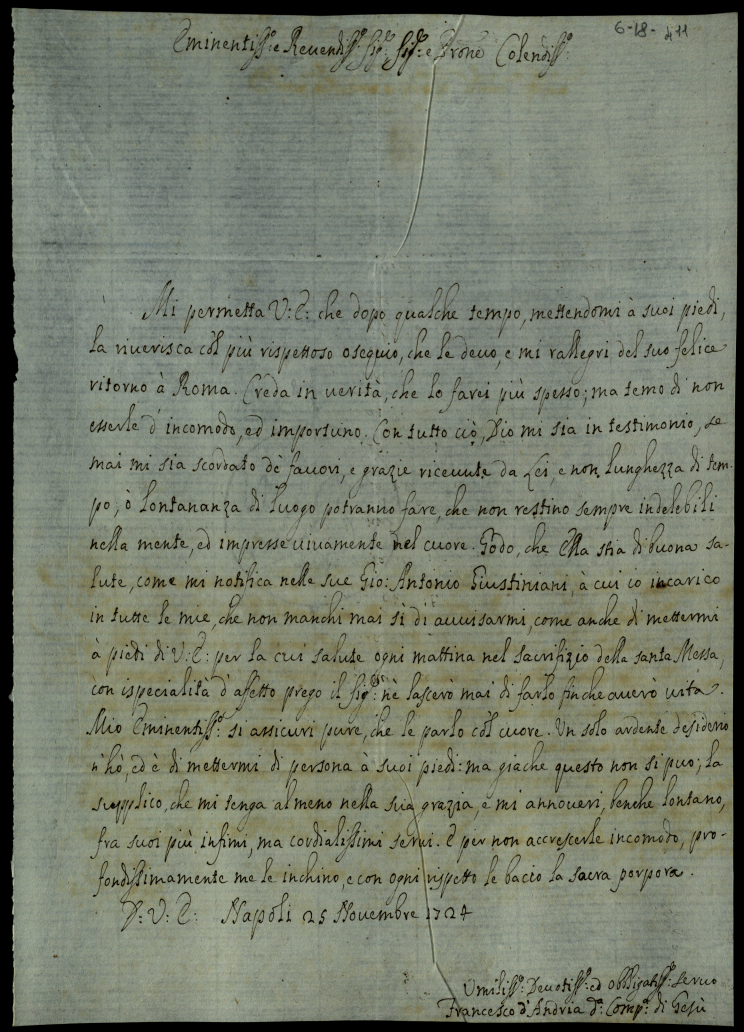 6-18-411
Eminentiss.e e Reverendiss. Sig.r Sig.r e Prone Colendiss.
Mi permetta V: E: che dopo qualche tempo, mettendomi à suoi piedi,
la riverisca còl più rispettoso osequio, che le devo, e mi rallegri del suo felice
ritorno à Roma. Creda in verità, che lo farei più spesso; ma temo di non
esserle d'incomodo, ed importuno. Con tutto ciò, Dio mi sia in testimonio, se
mai mi sia scordato dè favori, e grazie ricevute da Lei, e non lunghezza di tem-
po, ò lontananza di luogo potranno fare, che non restino sempre indelebili
nella mente, ed impresse vivamente nel cuore. Godo, che Ella stia di buona sa-
lute, come mi notifica nelle sue Gio: Antonio Giustiniani, à cui io incarico
in tutte le mie, che non manchi mai sì di avvisarmi, come anche di mettermi
à piedi di V: E: per la cui salute ogni mattina nel sacrifizio della santa Messa,
con ispecialità d'affetto prego il Sig.re nè lascerò mai di farlo finche averò vita.
Mio Eminentiss.o si assicuri pure, che le parlo còl cuore. Un solo ardente desiderio
n'hò, ed è di mettermi di persona à suoi piedi: ma giache questo non si puo; la
supplico, che mi tenga almeno nella sua grazia, e mi annoveri, benche lontano,
fra suoi più infimi, ma cordialissimi servi. E per non accrescerle incomodo, pro-
fondissimamente me le inchino, e con ogni rispetto le bacio la sacra porpora.
D: V: E: Napoli 25 Novembre 1724
Umiliss.o Devotiss.o ed obbligatiss.o servo
Francesco d'Andria d.a Comp.a di Gesù